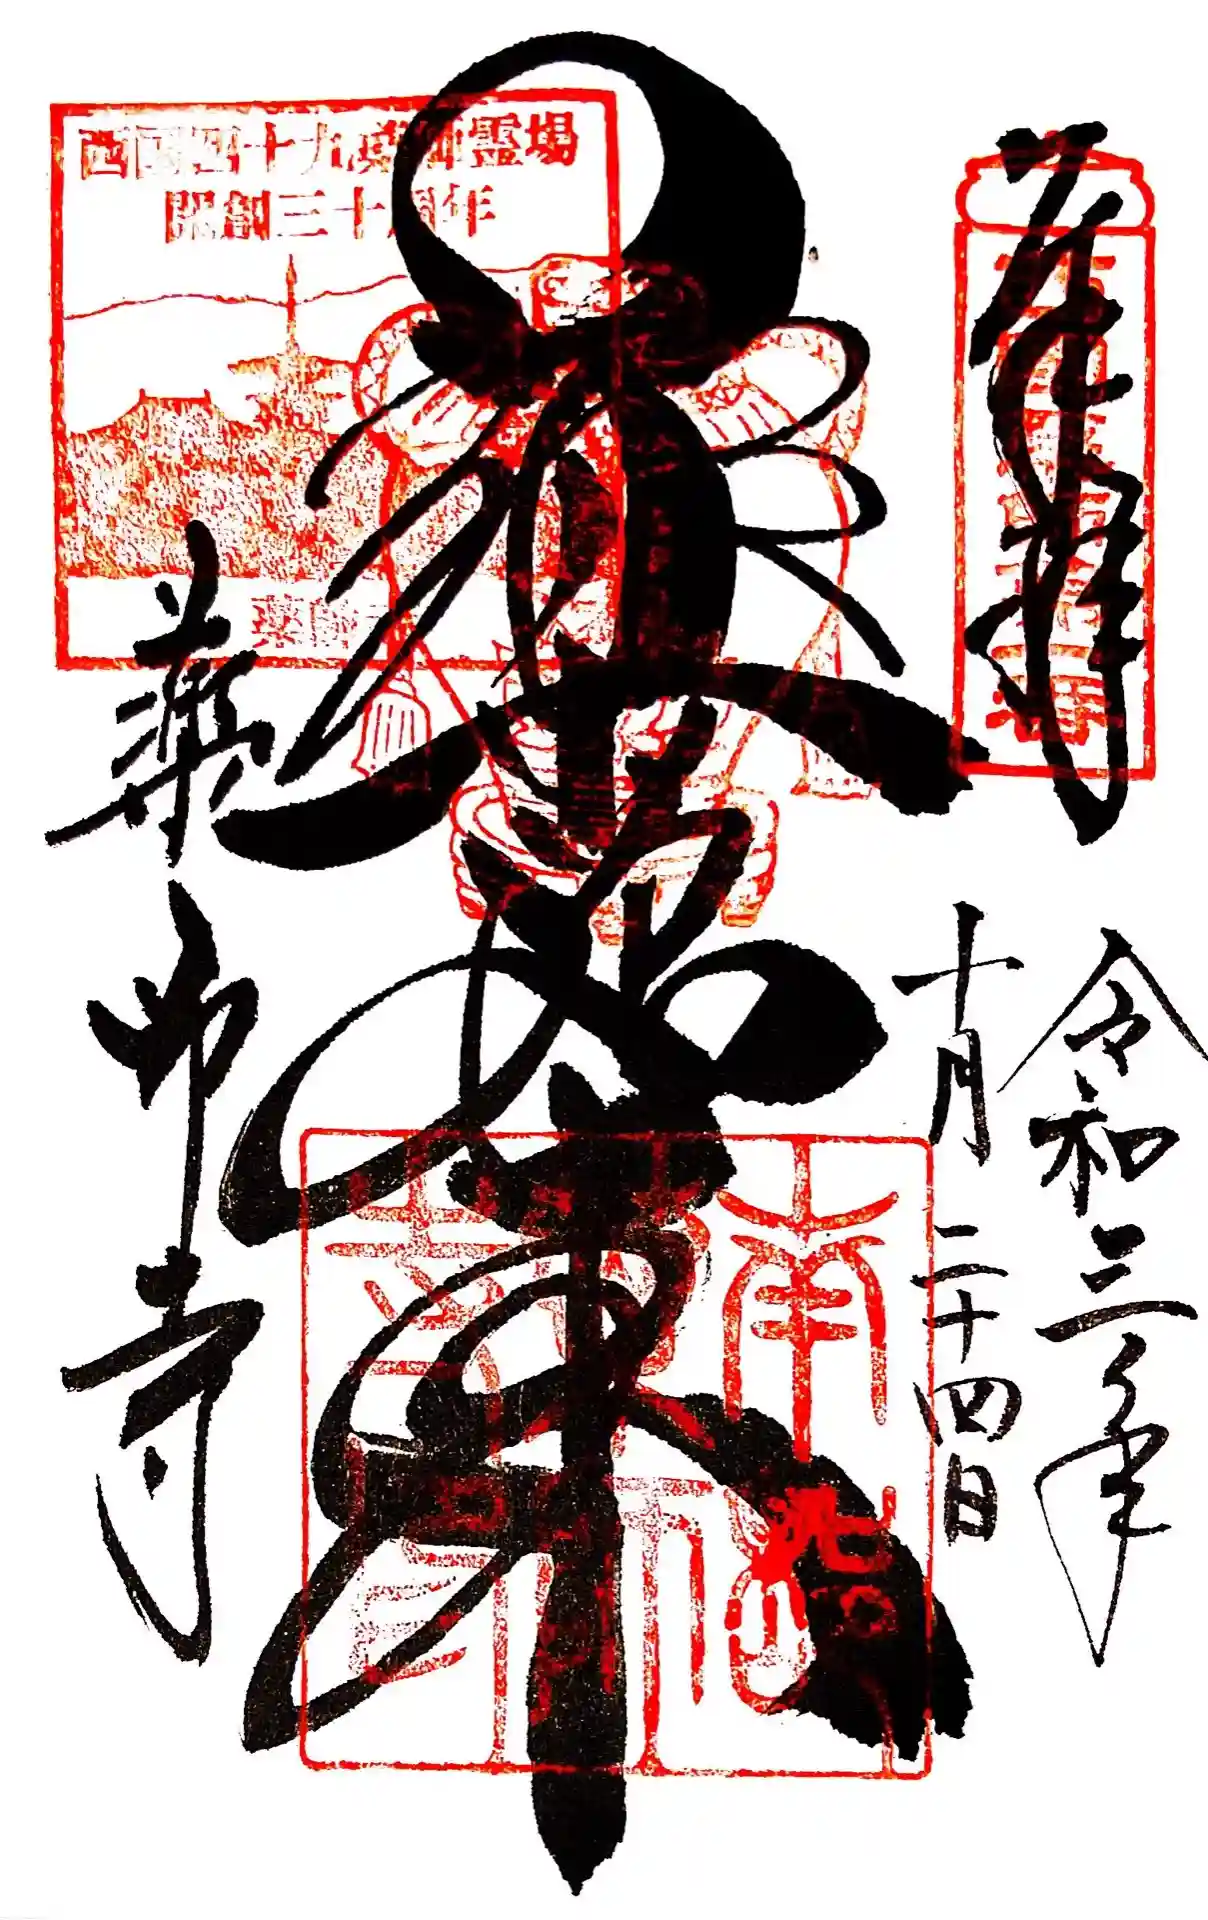 奉拝
令和三年
十月二十四日
薬師如来
薬師寺
西国四十九薬師霊場
開創三十周年